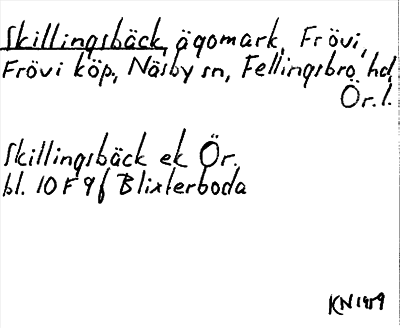 Skillingsbäck, ägomark, Frövi,
Frövi köp, Näsby sn, Fellingsbro hd,
Ör. l.
Skillingsbäck ek Ör.
bl. 10 F 9 f Blixterboda
KN 1959